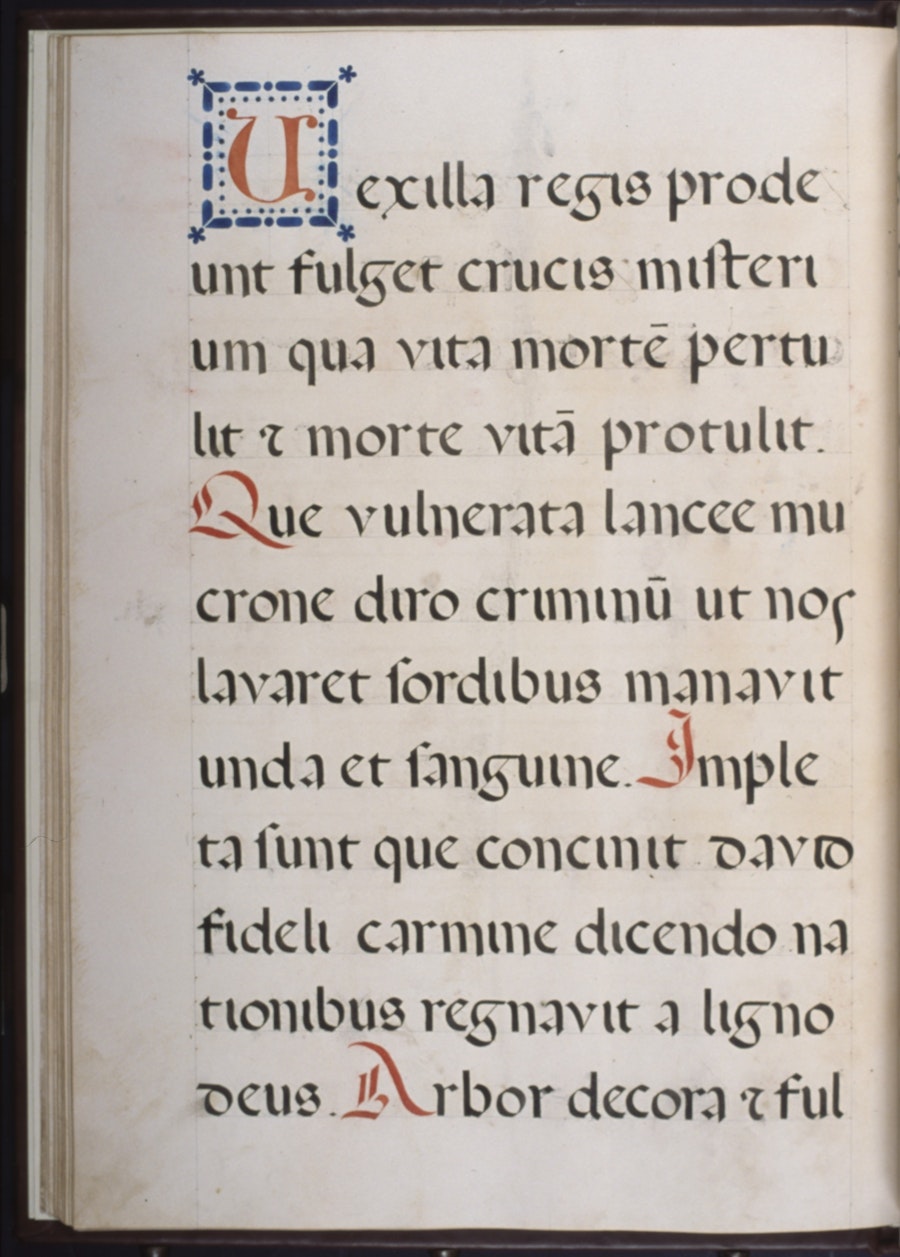 Uexilla regis prode
unt fulget crucis miſteri
um qua vita mortē pertu
lit ⁊ morte vitā protulit.
Que vulnerata lancee mu
crone diro criminū ut nos
lavaret ſordibus manavit
unda et ſanguine. Imple
ta ſunt que concinit david
fideli carmine dicendo na
tionibus regnavit a ligno
deus. Arbor decora ⁊ ful